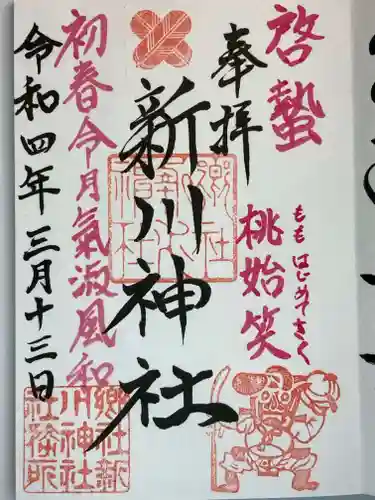 啓蟄
桃始笑
ももはじめてさく
奉拝
新川神社
初春令月氣淑風和
令和四年三月十三日
郷社新川神社社務所